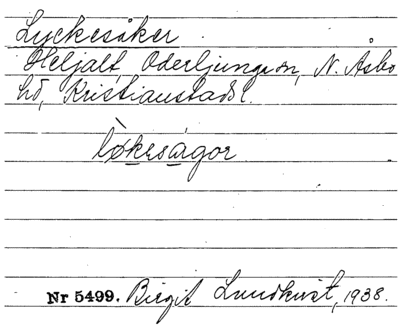 Lyckesåker
Heljalt, Oderljunga sn, N. Åsbo
hd, Kristianstads l.
lø̀kesågor
Nr 5499. Birgit Lundkvist, 1938.